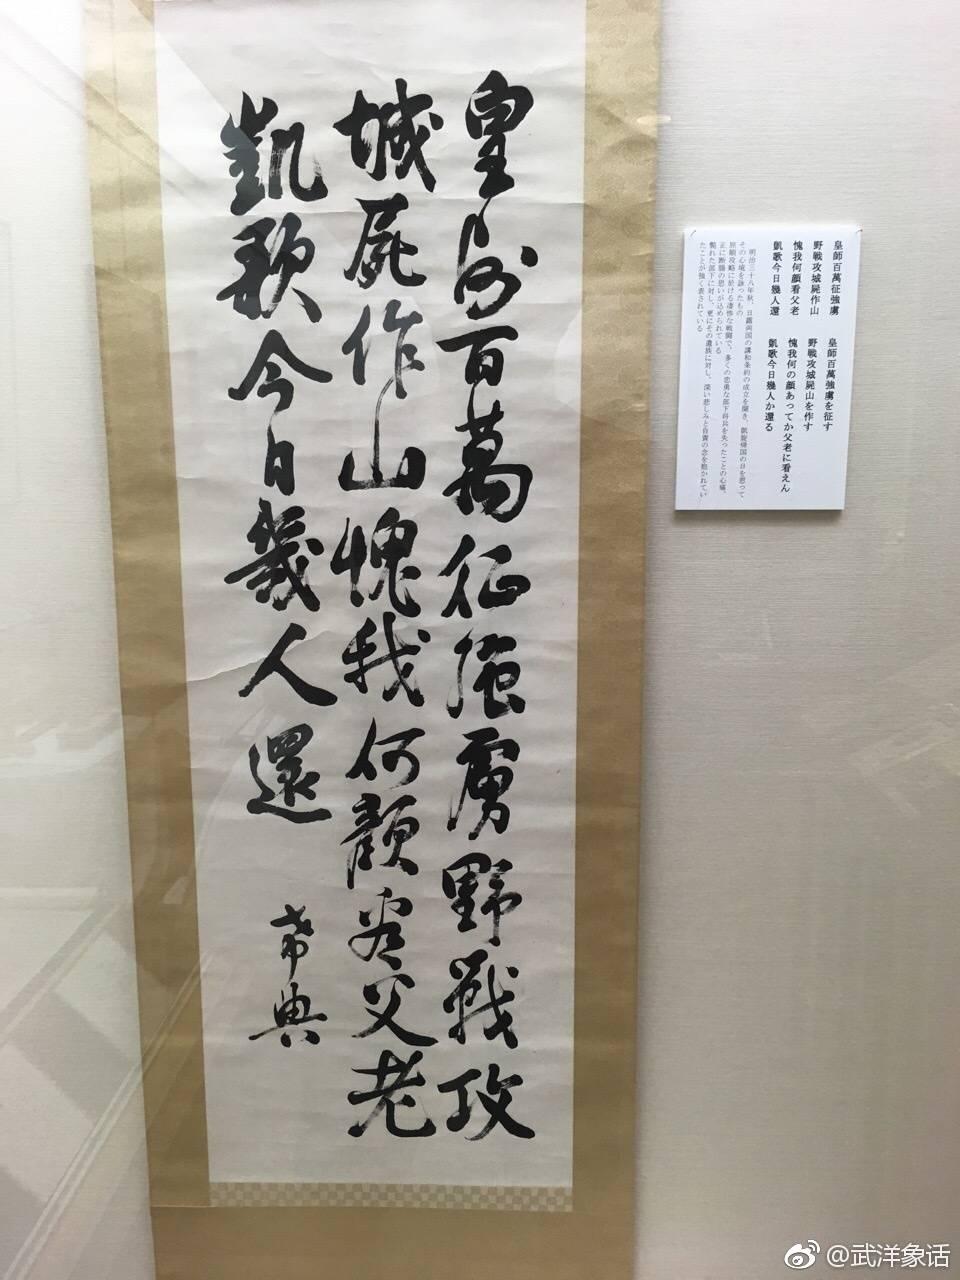 皇師百萬征強虜野戰攻
城屍作山愧我何顏看父老
凱歌今日幾人還
希典
皇師百萬征強虜
野戦攻城屍作山
愧我何顔看父老
凱歌今日幾人還
皇師百萬強虜を征す
野戦攻城屍山を作す
愧我何の顔あってか父老に看えん
凱歌今日幾人か還る
明治三十八年秋、日露両国の講和条約の成立を聞き、凱旋帰国の日を思って
その心境を詠ったもの
旅順攻略に於ける凄惨な戦闘で、多くの忠勇な部下将兵を失ったことの心痛、
正に断腸の思いが込められている
斃れた部下に対し、更にその遺族に対し、深い悲しみと自責の念を抱かれてい
たことが強く表されている
@武洋象话